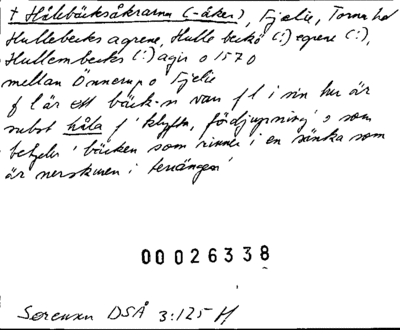 † Hålebäcksåkrarna (-åker), Fjelie, Torna hd
Hullebecks agrene, Hulle becks (:) egrene (:),
Hullembecks (:) agir o 1570
mellan Önnerup o Fjelie
f l är ett bäck:n vars f l i sin tur är
subst håla f 'klyfta, fördjupning', som
betyder 'bäcken som rinner i en sänka som
är nerskuren i terrängen'
00026338
Sørensen DSÅ 3:125 H